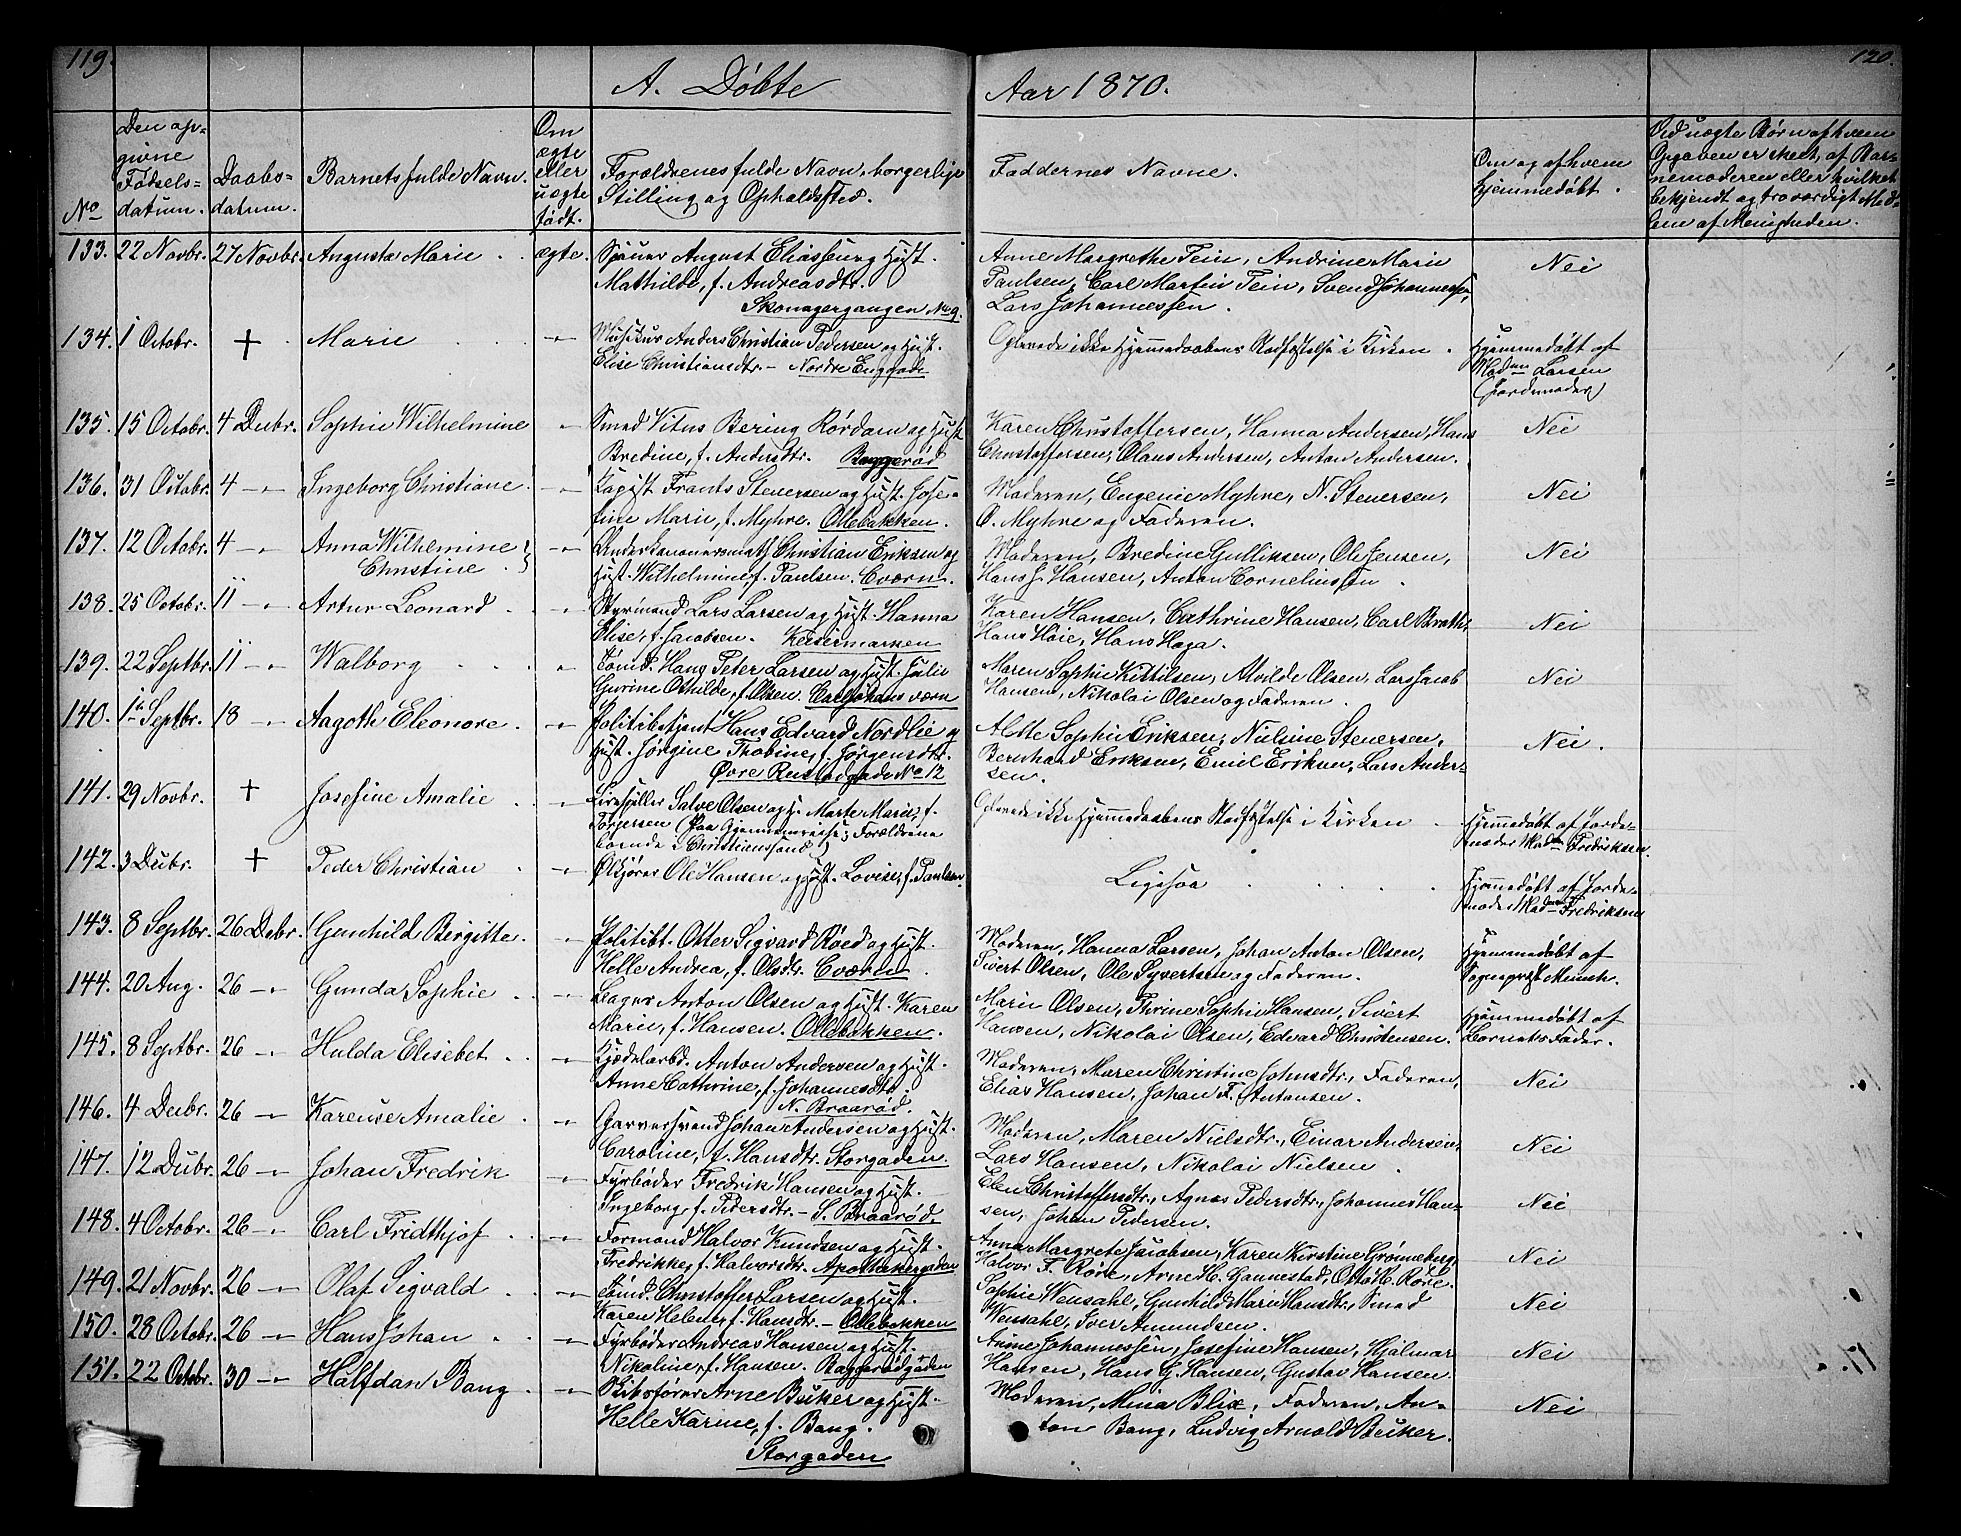 119.
120.
A. Döbte
Aar 1870.
No
Den op-
givne
Födsels-
datum.
Daabs-
datum.
Barnets fulde Navn.
Om
ægte
eller
uægte
født.
Forældrenes fulde Navn, borgerlige
Stilling og Opholdssted.
Faddernes Navne.
Om og af hvem
hjemmedöbt.
Ved uægte Börn af hvem
Opgaven er skeet, af Bar-
nemoderen eller hvilket
bekjendt og troværdigt Med-
lem af Menigheden.
133. 22 Novbr. 27 Novbr. Augusta Marie ægte. August Eliassen og Hust.
Mathilde, f. Andreasdtr.
Skomagergangen No 9.
Anne Margrethe Tein, Andrine Marie
Paulsen, Carl Martin Tein, Svend Johannessen,
Lars Johannessen.
Nei
134. 1 Octobr. + Marie -"- Musikus Anders Christian Pedersen og Hust.
Elise Christiansdtr. - Nordre Enggade
Oplevede ikke Hjemmedaabens Stadfæstelse i Kirken.
Hjemmedöbt af
Madm Larsen
(Jordemoder)
135. 15 Octobr. 4 Decbr. Sophie Wilhelmine -"- Smed Vitus Bering Rørdam og Hust.
Bredine, f. Andersdtr. Baggerød
Karen Christoffersen, Hanna Andersen, Hans
Christoffersen, Olaus Andersen, Anton Andersen.
Nei
136. 31 Octobr. 4 -"- Ingeborg Christiane -"- Frants Stenersen og Hust. Jose-
fine Marie, f. Myhre. Ollebakken.
Moderen, Eugenie Myhre, N. Stenersen,
O. Myhre og Faderen.
Nei
137. 12 Octobr. 4 -"- Anna Wilhelmine
Christine -"- Underkanoneersmath Christian Eriksen og
Hust. Wilhelmine, f. Paulsen. Cværn.
Moderen, Bredine Gulliksen, Ole Jensen,
Hans J. Hansen, Anton Corneliussen.
Nei
138. 25 Octobr. 11 -"- Artur Leonard -"- Styrmand Lars Larsen og Hust. Hanna
Elise, f. Jacobsen. Keisermarken
Karen Hansen, Cathrine Hansen, Carl Brath,
Hans Høie, Hans Haga.
Nei
139. 22 Septbr. 11 -"- Walborg -"- Tömd. Hans Peter Larsen og Hust. Julie
Gurine Othilde, f. Olsen. Carljohansværn
Maren Sophie Kittilsen, Alvilde Olsen, Lars Jacob
Hansen, Nikolai Olsen og Faderen.
Nei
140. Septbr. 18 -"- Aagoth Eleonore -"- Politibetjent Hans Edvard Nordlie og
Hust. Jørgine Thobine, f. Jørgensdtr.
Øvre No 12
Alette Sophie Eriksen, Nielsine Stenersen,
Bernhard Eriksen, Emil Eriksen, Lars Ander-
sen.
Nei.
141. 29 Novbr. + Josefine Amalie Salve Olsen og H. Marte Marie, f.
Torjersen (paa Gjennemreise; Forældrene
boende i Christianssand)
Oplevede ikke Hjemmedaabens Stadfæstelse i Kirken
Hjemmedöbt af Jorde-
moder Madm Fredriksen.
142. 3 Decbr. + Peder Christian -"- Ølkjører Ole Hansen og Hust. Lovise, f. Paulsen.
Ligesaa
Hjemmedöbt af Jorde-
moder Madm Fredriksen
143. 8 Septbr. 26 Decbr. Gunhild Birgitte -"- Politibt. Otter Sigvard Röed og Hust.
Helle Andrea, f. Olsdtr. Cværn.
Moderen, Hanna Larsen, Johan Anton Olsen,
Sivert Olsen, Ole Syvertsen og Faderen.
Hjemmedöbt af
Sogneprest Munch.
144. 20 Aug. 26 -"- Gunda Sophie -"- Bager Anton Olsen og Hust. Karen
Marie, f. Hansen. Ollebakken.
Marie Olsen, Thrine Sophie Hansen, Sivert
Hansen, Nikolai Olsen, Edvard Christensen.
Hjemmedöbt af
Barnets Fader.
145. 8 Septbr. 26 -"- Hulda Elisebet -"- Kjedelarbd. Anton Andersen og Hust.
Anne Cathrine, f. Johannesdtr.
N. Braarød.
Moderen, Maren Christine Johnsdtr., Faderen,
Elias Hansen, Johan F. Antonsen.
Nei
146. 4 Decbr. 26 -"- Karense Amalie -"- Garversvend Johan Andersen og Hust.
Caroline, f. Hansdtr. Storgaden.
Moderen, Maren Nielsdtr., Einar Andersen,
Lars Hansen, Nikolai Nielsen.
Nei
147. 12 Decbr. 26 -"- Johan Fredrik -"- Fyrbøder Fredrik Hansen og Hust.
Ingeborg, f. Pedersdtr. - S. Braarød.
Elen Christoffersdtr., Agnes Pedersdtr., Johannes Han-
sen, Johan Pedersen.
Nei
148. 4 Octobr. 26 -"- Carl Fridthjof -"- Formand Halvor Knudsen og Hust.
Fredrikke, f. Halvorsdtr. Apothekergaden
Anna Margrete Jacobsen, Karen Kirstine Grønneberg,
Halvor F. Røre, Arne H. Gannestad, Otto H. Røre.
Nei
149. 21 Novbr. 26 -"- Olaf Sigvald -"- Tömd. Christoffer Larsen og Hust.
Karen Helene, f. Hansdtr. - Ollebakken
Sophie Wensahl, Gunhild Marie Hansdtr., Smed
Wensahl, Iver Amundsen.
Nei
150. 28 Octobr. 26 -"- Hans Johan -"- Fyrbøder Andreas Hansen og Hust.
Nikoline, f. Hansen. Baggerødgaden
Anne Johannessen, Josefine Hansen, Hjalmar
Hansen, Hans G. Hansen, Gustav Hansen
Nei
151. 22 Octbr. 30 -"- Halfdan Bang -"- Skibsfører Arne Buker og Hust.
Helle Karine, f. Bang.
Storgaden
Moderen, Mina Blix, Faderen, An-
ton Bang, Ludvig Arnold Buker.
Nei